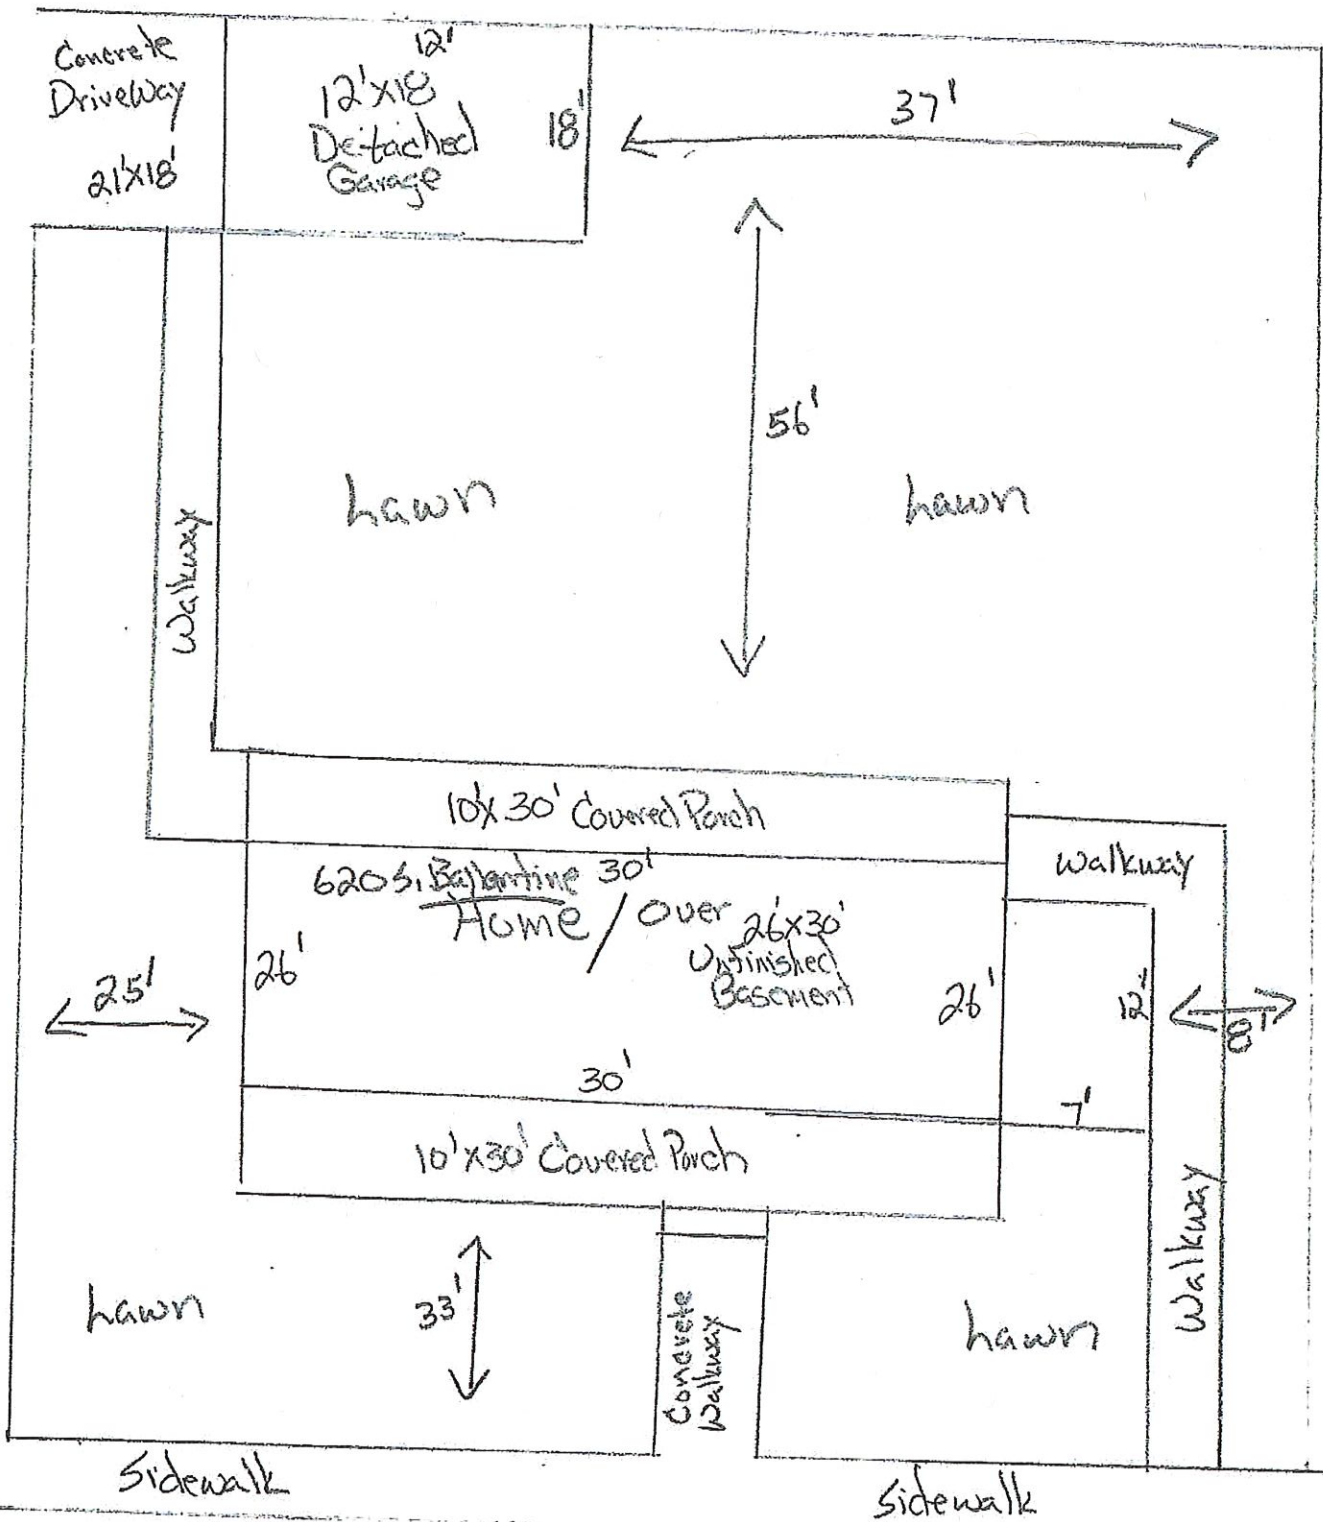 Concrete
Driveway
21'X18'
12'
12'X18'
Detached
Garage
18'
37'
56'
Lawn
Lawn
Walkway
10'X30' Covered Porch
Walkway
620 S. Ballentine 30'
Home / Over 26'X30'
Unfinished
Basement
26'
26'
25'
12'
8'
30'
7'
10'X30' Covered Porch
Walkway
33'
Lawn
Concrete
Walkway
Lawn
Sidewalk
Sidewalk